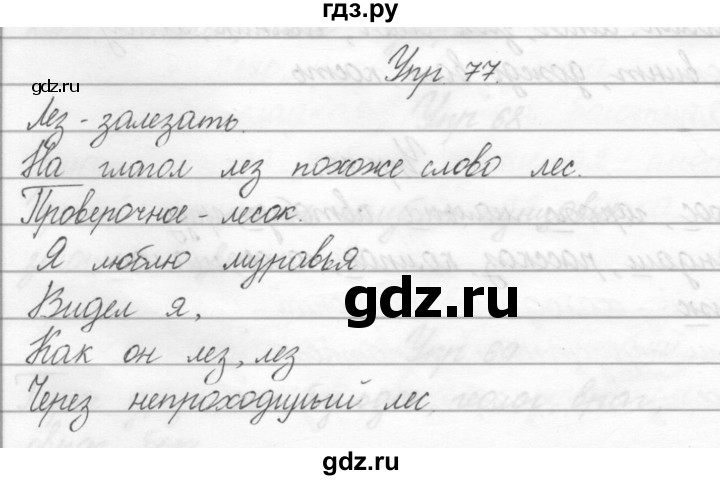 гдз.ру
gdz.ru
Упр. 77.
Лез - залезать.
На глагол лез похоже слово лес.
Проверочное - лесок.
Я люблю муравья
Видел я,
gdz.ru
Как он лез, лез
Через непроходимый лес.
gdz.ru